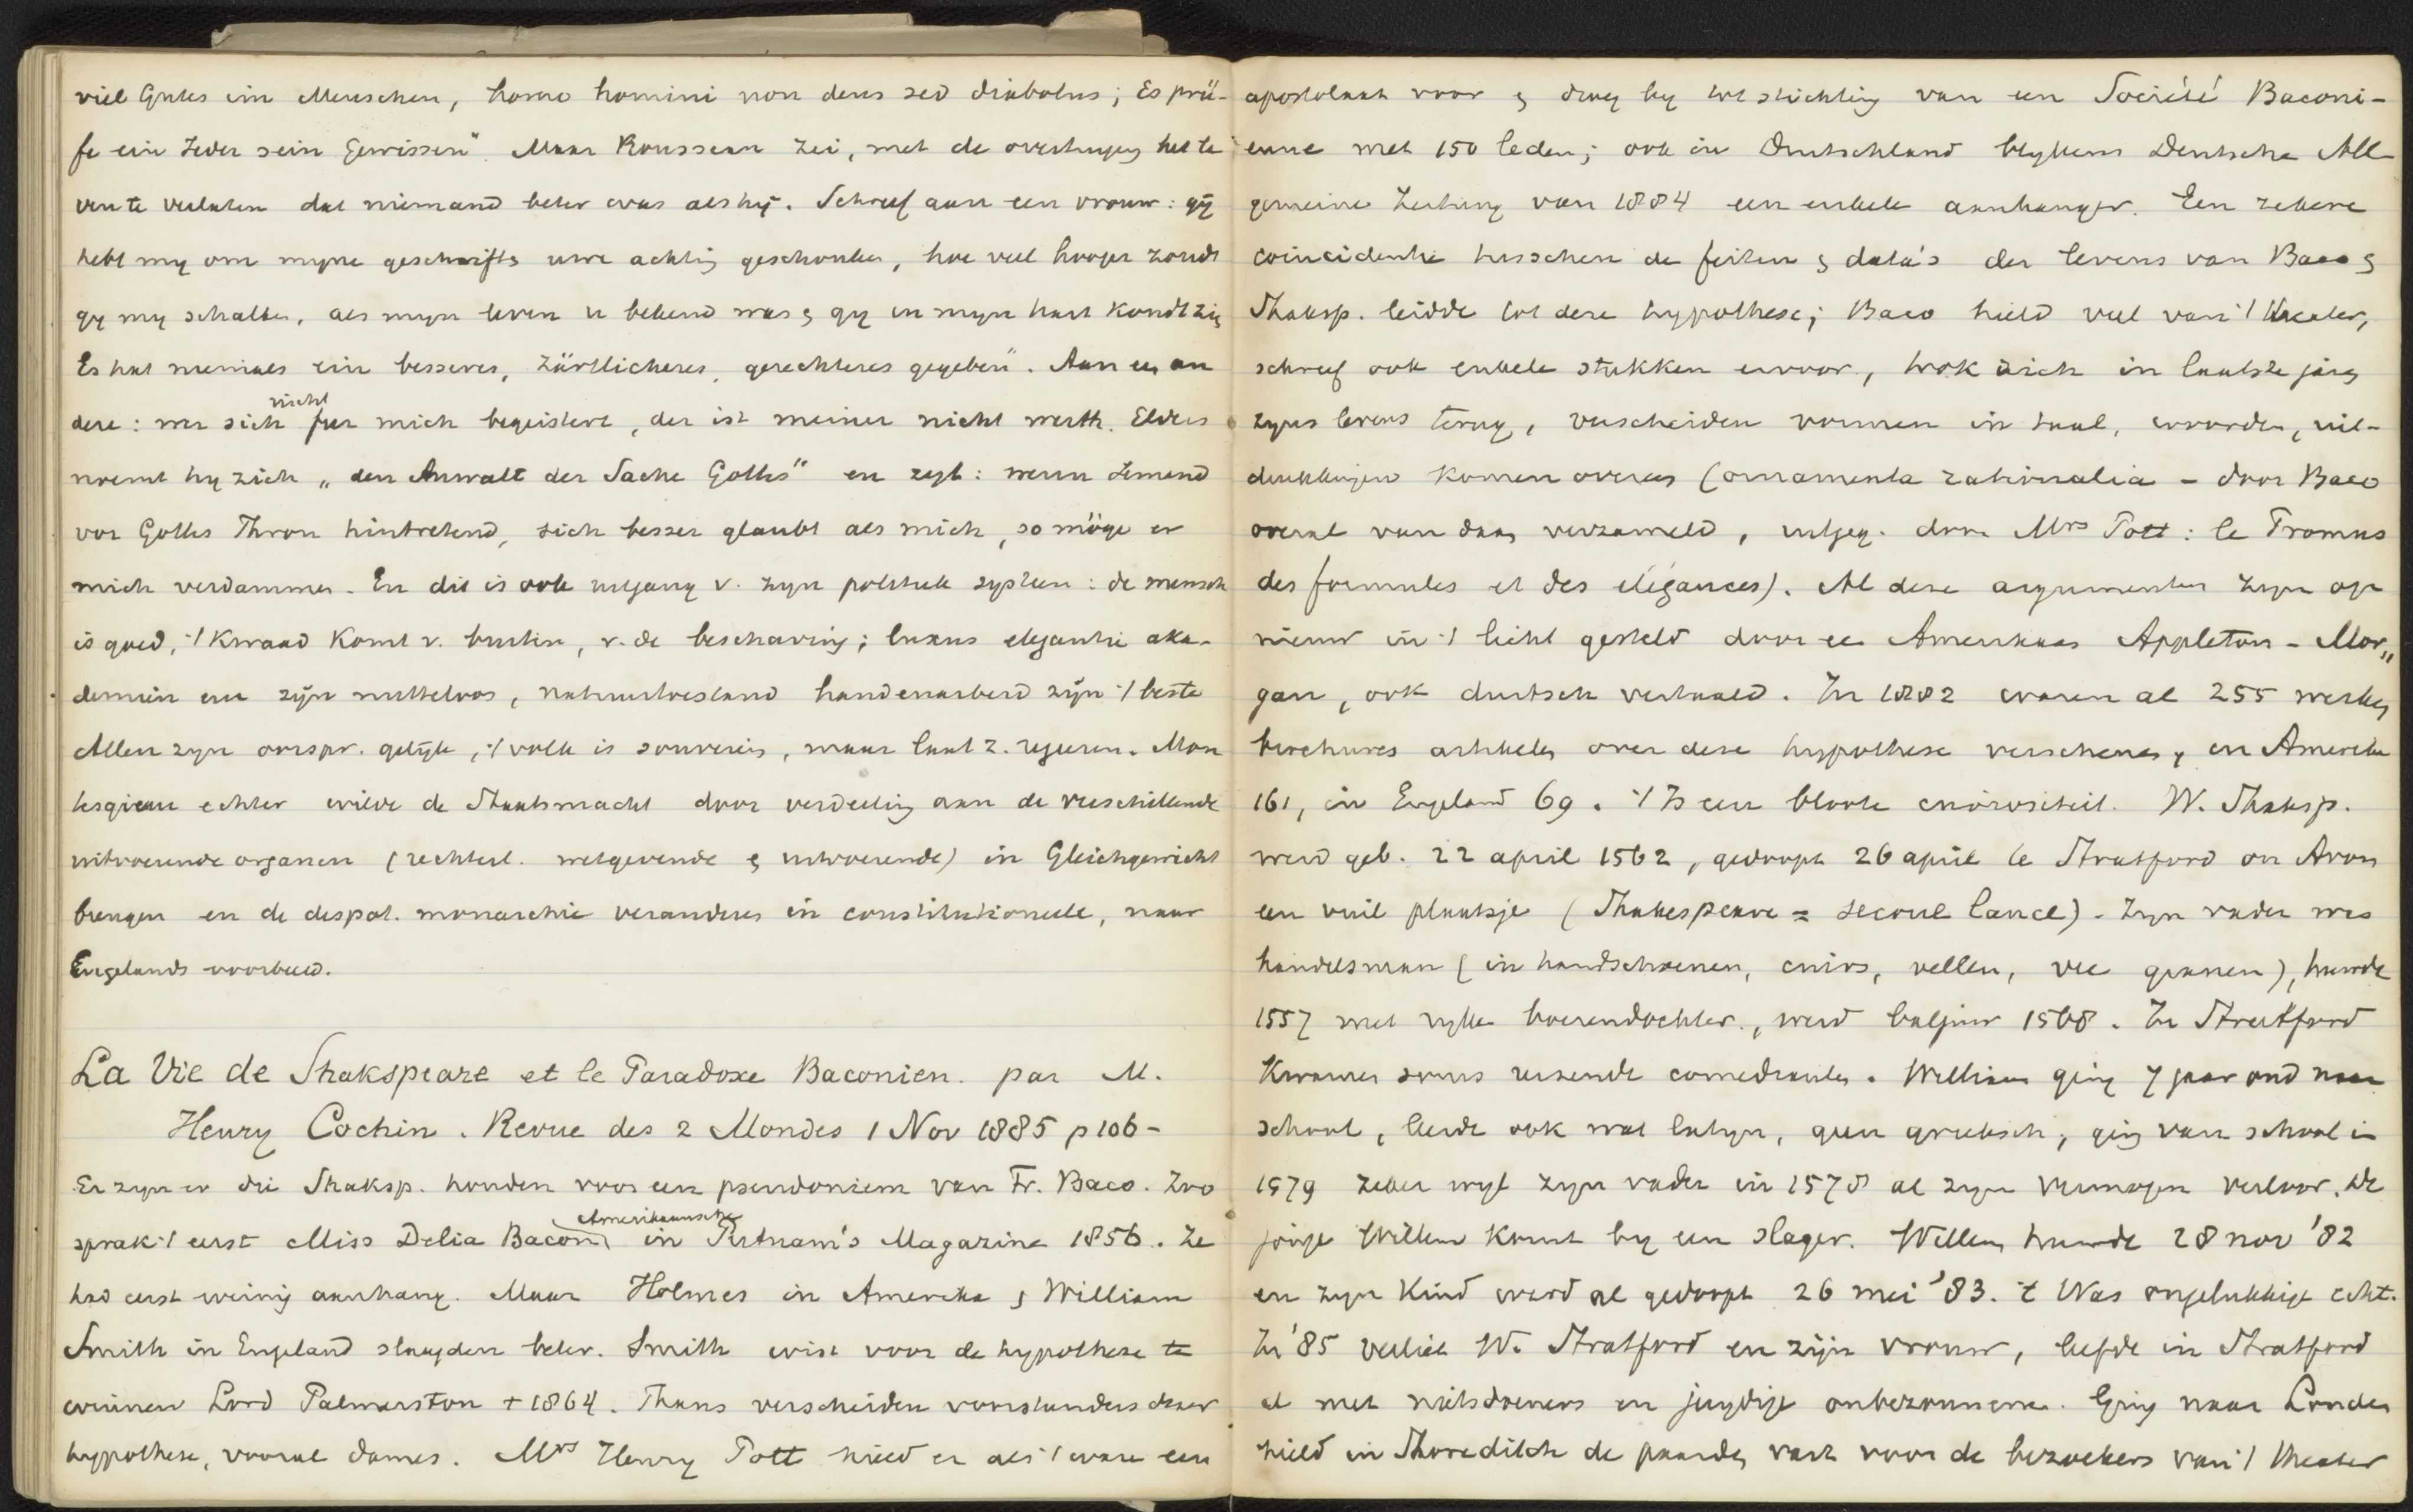 viel Gutes im Menschen, homo homini non deus sed diabolus; Es prü-
fe ein Jeder sein Gewissen". Maar Rousseau zei, met de overtuiging het le
ven te verlaten dat niemand beter was als hij. Schreef aan een vrouw: gij
hebt my om myne geschriften uwe achting geschonken, hoe veel hooger zoudt
gy my schatten, als myn leven u bekend was en gy in myn hart kondt zien
Es hat niemals ein besseres, zärtlicheres, gerechteres gegeben". Aan een an
dere: wer sich nicht fur mich begeistert, der ist meiner nicht werth. Elders
noemt hy zich „den Anwalt der Sache Gottes" en zegt: wenn Jemand
vor Gottes Thron hintretend, sich besser glaubt als mich, so möge er
mich verdammen. En dit is ook uitgang v. zyn politiek systeem: de mensch
is goed, 't kwaad komt v. buiten, v. de beschaving; luxus elegantie aka-
demien enz zijn nutteloos, natuurtoestand handenarbeid zijn 't beste
Allen zyn oorspr. gelijk, 't volk is souverein, maar laat z. regeeren. Mon
tesquieu echter wilde de Staatsmacht door verdeeling aan de verschillende
uitvoerende organen (rechterl. wetgevende en uitvoerende) in Gleichgewicht
brengen en de despot. monarchie veranderen in constitutioneele, naar
Engelands voorbeeld.
La Vie de Shakspeare et le Paradoxe Baconien. par M.
Henry Cochin. Revue des 2 Mondes 1 Nov 1885 p 106-
Er zyn er die Shaksp. houden voor een pseudoniem van Fr. Baco. Zoo
sprak 't eerst Miss Delia Bacon in Amerikaansche Putnam's Magazine 1856. Ze
had eerst weinig aanhang. Maar Holmes in Amerika en William
Smith in Engeland slaagden beter. Smith wist voor de hypothese te
winnen Lord Palmerston † 1864. Thans verscheiden voorstanders dezer
hypothese, vooral dames. Mrs Henry Pott hield er als 't ware een
apostolaat voor en droeg by tot stichting van een Société Baconi-
enne met 150 leden; ook in Duitschland blykens Deutsche All
gemeine Zeitung van 1884 een enkele aanhanger. Een zekere
coincidentie tusschen de feiten en data's der levens van Baco en
Shaksp. leidde tot deze hypothese; Baco hield veel van 't theater,
schreef ook enkele stukken ervoor, trok zich in laatste jaren
zyns levens terug, verscheiden vormen in taal, woorden, uit-
drukkingen komen overeen (ornamenta rationalia - door Baco
overal van daan verzameld, uitgeg. door Mrs Pott: le Promus
des formules et des élégances). Al deze argumenten zyn op
nieuw in 't licht gesteld door een Amerikaan Appleton - Mor„
gan, ook duitsch vertaald. In 1882 waren al 255 werken
brochures artikelen over deze hypothese verschenen, in Amerika
161, in Engeland 69. 't Is een bloote curiositeit. W. Shaksp.
werd geb. 22 april 1562, gedoopt 26 april te Stratford on Avon
een vuil plaatsje (Shakespeare = secoue lance). Zyn vader was
handelsman (in handschoenen, cuirs, vellen, vee granen), huwde
1557 met rijke boerendochter, werd baljuw 1568. In Stratford
kwamen soms reizende comedianten. William ging 7 jaar oud naar
school, leerde ook wat latyn, geen grieksch, ging van school in
1579 zeker wyl zyn vader in 1578 al zyn vermogen verloor. De
jonge Willem komt by een slager. Willem huwde 28 nov '82
en zyn kind werd al gedoopt 26 mei '83. t Was ongelukkige echt.
In '85 verliet W. Stratford en zijn vrouw, leefde in Stratford
al met nietsdoeners en jeugdige onbezonnenen. Ging naar Londen
hield in Shoreditch de paarden vast voor de bezoekers van 't theater